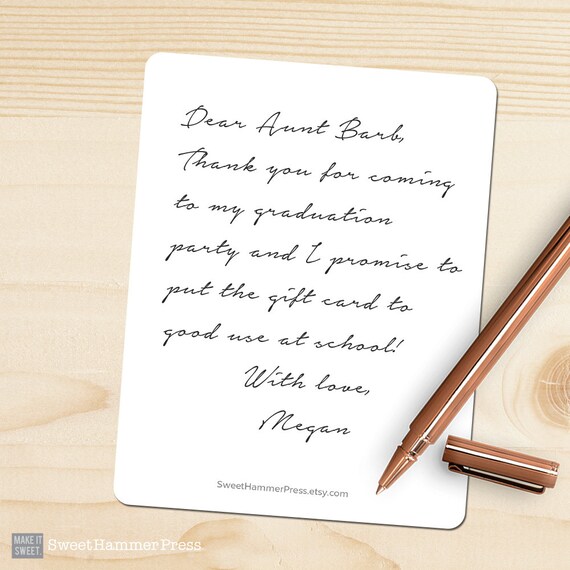 Dear Aunt Barb,
Thank you for coming
to my graduation
party and I promise to
put the gift card to
good use at school!
With love,
Megan
SweetHammerPress.etsy.com
MAKE IT
SWEET.
SweetHammerPress